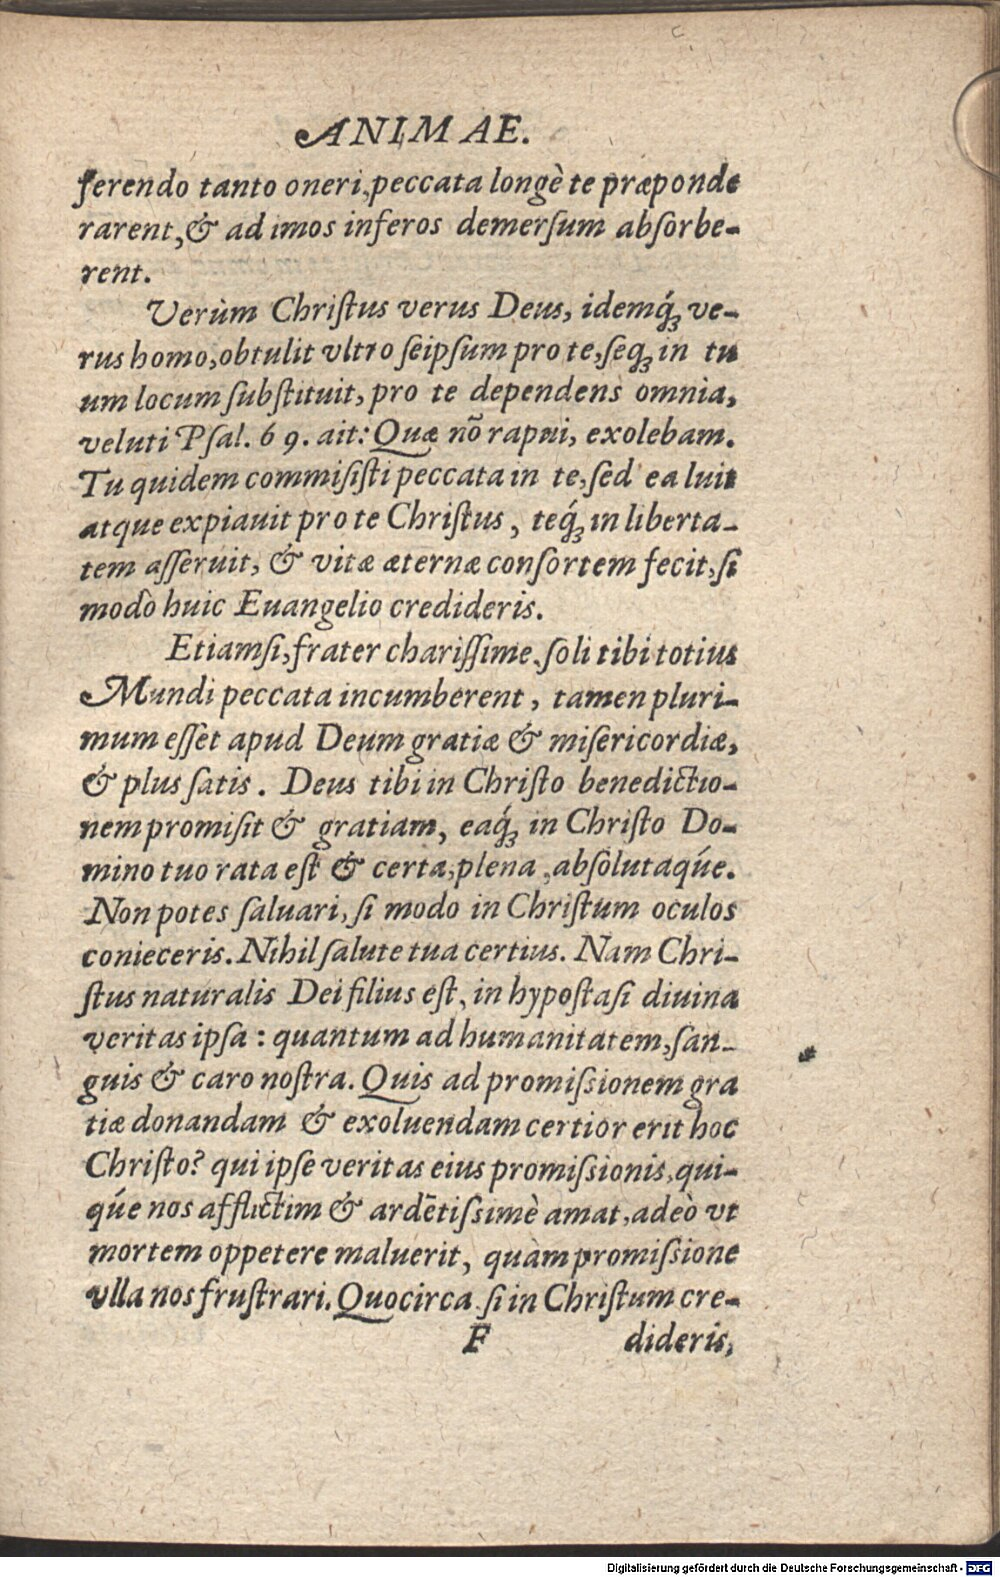 ANIMAE.
ferendo tanto oneri, peccata longè te præponde
rarent, & ad imos inferos demerſum abſorbe-
rent.
Verùm Chriſtus verus Deus, idemq́ꝫ ve-
rus homo, obtulit vltro ſeipſum pro te, ſeqꝫ in tu
um locum ſubſtituit, pro te dependens omnia,
veluti Pſal. 69. ait: Quæ nõ rapui, exolebam.
Tu quidem commiſiſti peccata in te, ſed ea luit
atque expiauit pro te Chriſtus, teq́ꝫ in liberta-
tem aſſeruit, & vitæ æternæ conſortem fecit, ſi
modò huic Euangelio credideris.
Etiamſi, frater chariſſime, ſoli tibi totius
Mundi peccata incumberent, tamen pluri-
mum eſſet apud Deum gratiæ & miſericordiæ,
& plus ſatis. Deus tibi in Chriſto benedictio-
nem promiſit & gratiam, eaq́ꝫ in Chriſto Do-
mino tuo rata eſt & certa, plena, abſolutaq́ue.
Non potes ſaluari, ſi modo in Chriſtum oculos
conieceris. Nihil ſalute tua certius. Nam Chri-
ſtus naturalis Dei filius eſt, in hypoſtaſi diuina
veritas ipſa: quantum ad humanitatem, ſan-
guis & caro noſtra. Quis ad promiſsionem gra
tiæ donandam & exoluendam certior erit hoc
Chriſto? qui ipſe veritas eius promiſsionis, qui-
q́ue nos afflictim & ardẽtiſsimè amat, adeò vt
mortem oppetere maluerit, quàm promiſsione
vlla nos fruſtrari. Quocirca ſi in Chriſtum cre-
F dideris,
Digitalisierung gefördert durch die Deutsche Forschungsgemeinschaft - DFG